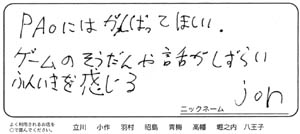 PAOにはがんばってほしい。
ゲームのそうだんや会話がしずらい
ふんいきを感じる
ニックネーム
jon
よく利用されるお店を
○で囲んでください。
立川 小作 羽村 昭島 青梅 高幡 堀之内 八王子